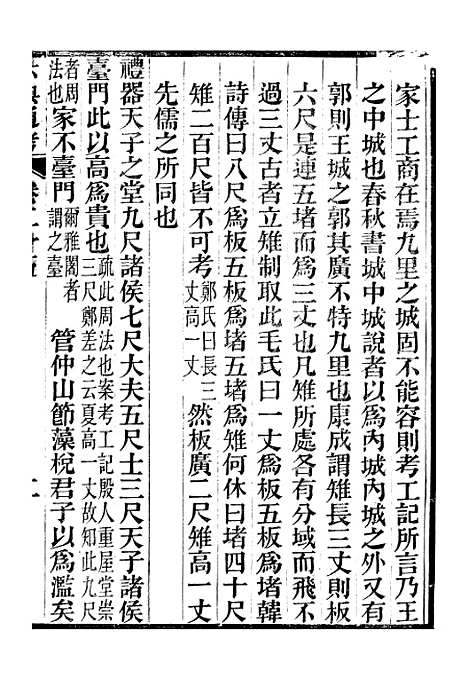 家士工商在焉九里之城固不能容則考工記所言乃王
之中城也春秋書城中城說者以爲內城內城之外又有
郭則王城之郭其廣不特九里也康成謂雉長三丈則板
六尺是連五堵而爲三丈也凡雉所處各有分域而飛不
過三丈古者立雉制取此毛氏曰一丈爲板五板爲堵韓
詩傳曰八尺爲板五板爲堵五堵爲雉何休曰堵四十尺
雉二百尺皆不可考鄭氏曰長三丈高一丈然板廣二尺雉高一丈
先儒之所同也
禮器天子之堂九尺諸侯七尺大夫五尺士三尺天子諸侯
臺門此以高爲貴也疏此周法也案考工記殷人重屋堂崇三尺鄭差之云夏高一丈故知此九尺
者周法也家不臺門爾雅闍者謂之臺管仲山節藻梲君子以爲濫矣
六典通考 卷二十五 二